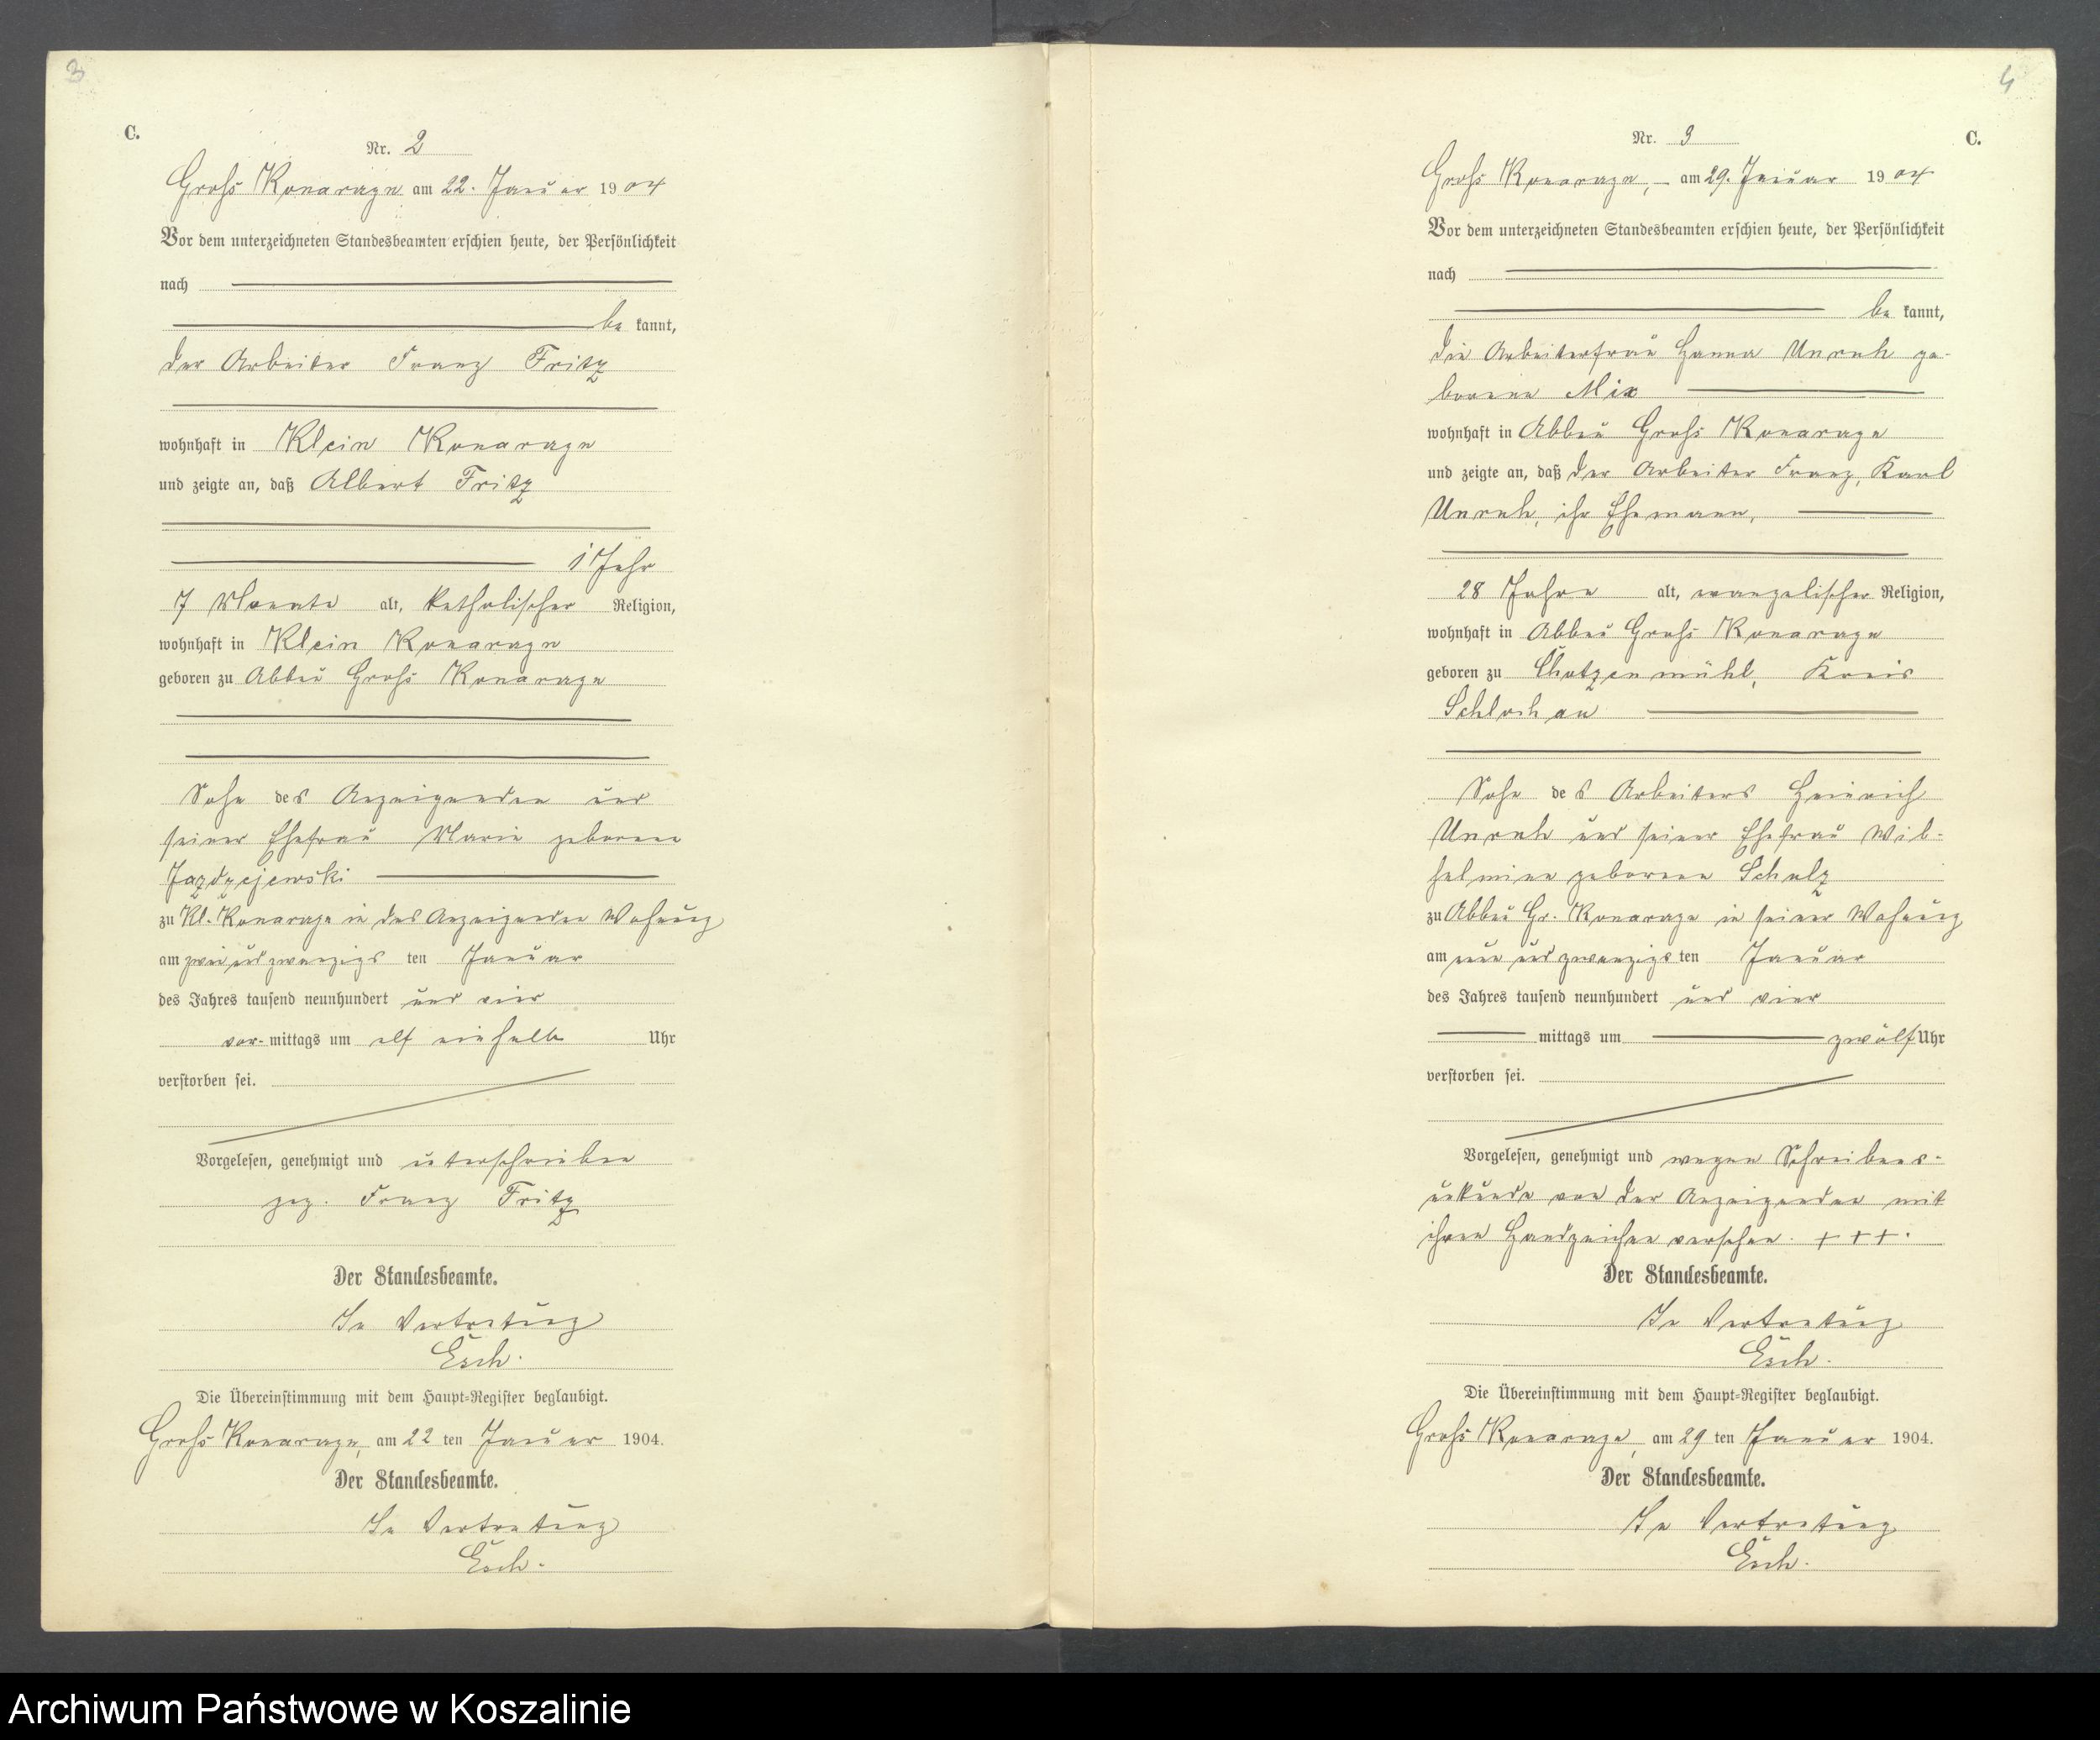 3
C.
Nr. 2
Groß Konarzyn am 22. Januar 1904
Vor dem unterzeichneten Standesbeamten erschien heute, der Persönlichkeit
nach
be kannt,
der Arbeiter Franz Fritz
wohnhaft in Klein Konarzyn
und zeigte an, daß Albert Fritz
1 Jahr
7 Monate alt, katholischer Religion,
wohnhaft in Klein Konarzyn
geboren zu Abbau Groß Konarzyn
Sohn des Anzeigenden und
seiner Ehefrau Marie geborene
Jazdzejewski
zu Kl. Konarzyn in des Anzeigenden Wohnung
am zwei und zwanzigs ten Januar
des Jahres tausend neunhundert und vier
vor- mittags um elf einhalb Uhr
verstorben sei.
Vorgelesen, genehmigt und unterschrieben
gez. Franz Fritz
Der Standesbeamte.
In Vertretung
Esch.
Die Übereinstimmung mit dem Haupt-Register beglaubigt.
Groß Konarzyn, am 22 ten Januar 1904.
Der Standesbeamte.
In Vertretung
Esch.
4
Nr. 3 C.
Groß Konarzyn, am 29. Januar 1904
Vor dem unterzeichneten Standesbeamten erschien heute, der Persönlichkeit
nach
be kannt,
die Arbeiterfrau Hanna Unruh ge-
borene Mix
wohnhaft in Abbau Groß Konarzyn
und zeigte an, daß der Arbeiter Franz, Karl
Unruh, ihr Ehemann,
28 Jahre alt, evangelischer Religion,
wohnhaft in Abbau Groß Konarzyn
geboren zu Chotzenmühl, Kreis
Schlochau
Sohn des Arbeiters Heinrich
Unruh und seiner Ehefrau Wil-
helmine geborene Schulz
zu Abbau Gr. Konarzyn in seiner Wohnung
am neun und zwanzigs ten Januar
des Jahres tausend neunhundert und vier
mittags um zwölf Uhr
verstorben sei.
Vorgelesen, genehmigt und wegen Schreibens-
unkunde von der Anzeigenden mit
ihren Handzeichen versehen. + + +.
Der Standesbeamte.
In Vertretung
Esch.
Die Übereinstimmung mit dem Haupt-Register beglaubigt.
Groß Konarzyn, am 29 ten Januar 1904.
Der Standesbeamte.
In Vertretung
Esch.
Archiwum Państwowe w Koszalinie